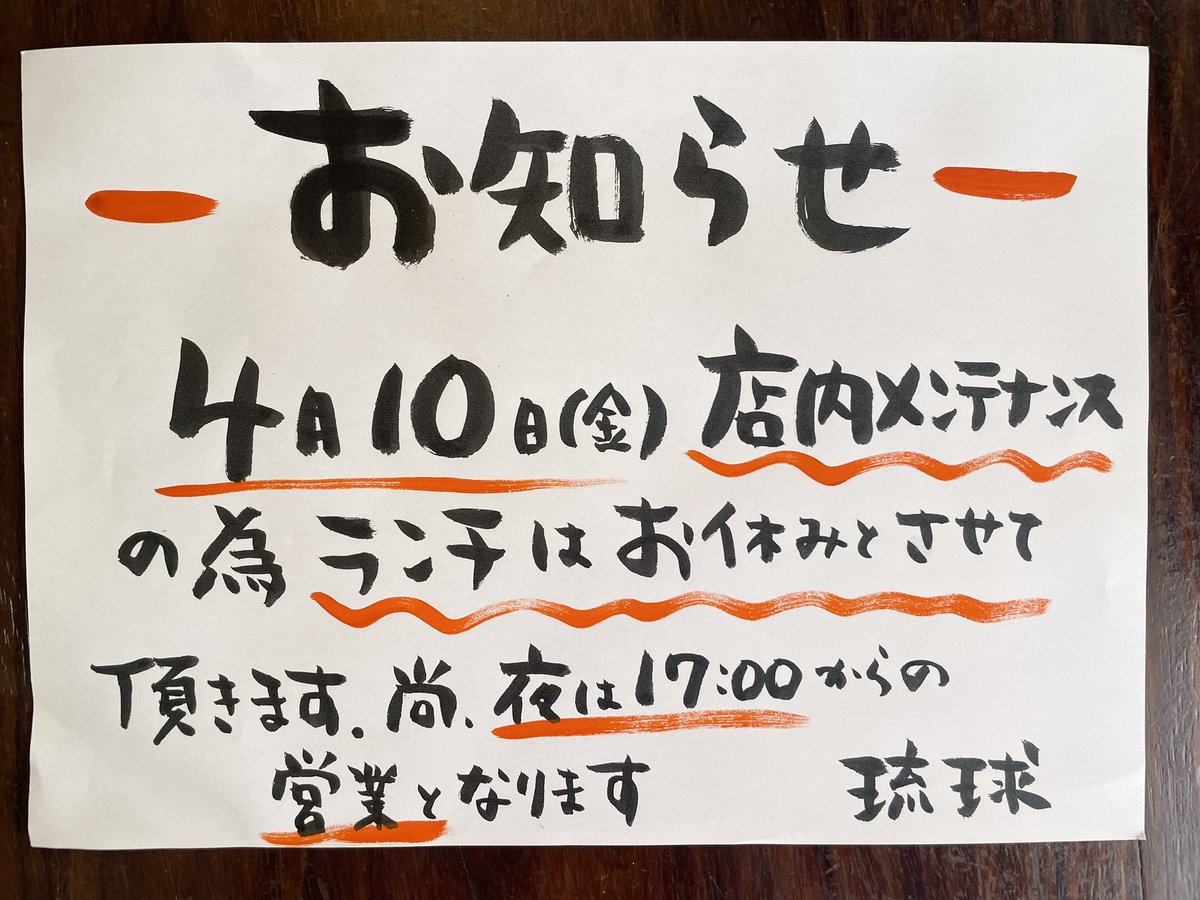 お知らせ
4月10日(金)店内メンテナンス
の為ランチはお休みとさせて
頂きます。尚、夜は17:00からの
営業となります 琉球